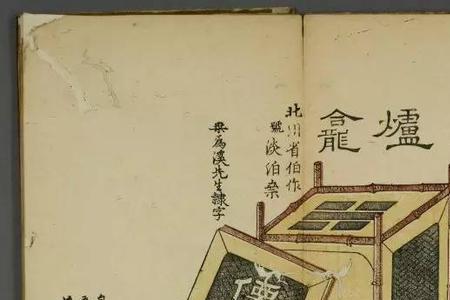 爐龕
北川省伯作
號淡泊斎
桒為溪先生隸字